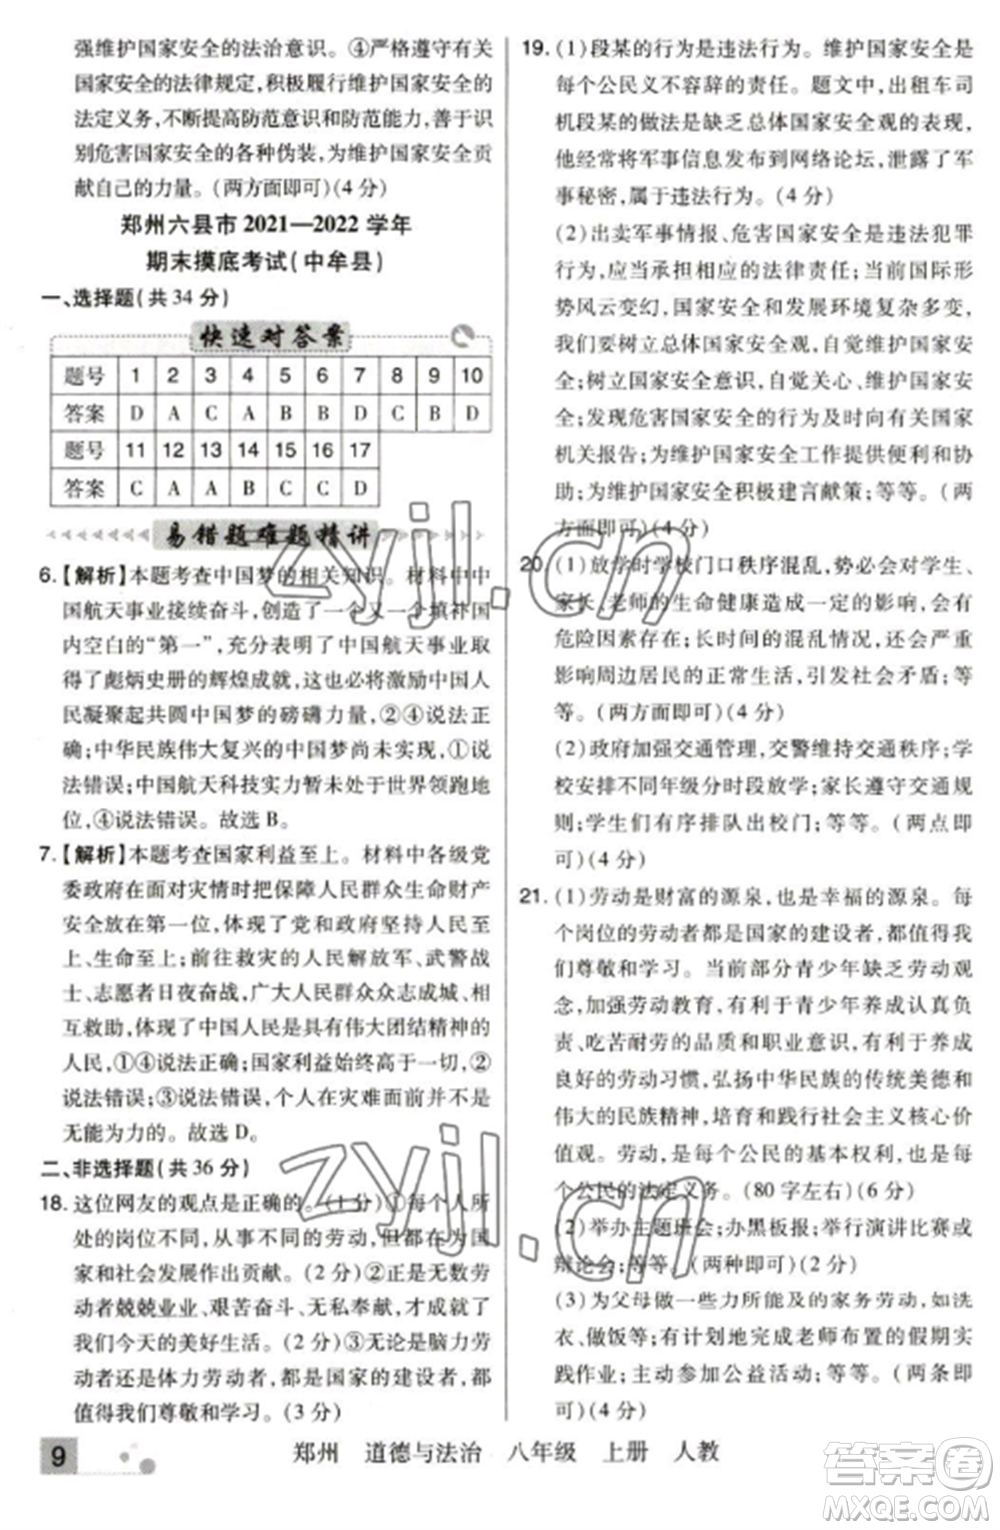 强维护国家安全的法治意识。④严格遵守有关
国家安全的法律规定,积极履行维护国家安全的
法定义务,不断提高防范意识和防范能力,善于识
别危害国家安全的各种伪装,为维护国家安全贡
献自己的力量。(两方面即可)(4 分)
郑州六县市 2021—2022 学年
期末摸底考试(中牟县)
一、选择题(共 34 分)
快速对答案
题号 1 2 3 4 5 6 7 8 9 10
答案 D A C A B B D C B D
题号 11 12 13 14 15 16 17
答案 C A A B D C A
易错题难题精讲
6.【解析】本题考查中国梦的相关知识。材料中中
国航天事业接续奋斗,创造了一个又一个填补国
内空白的“第一”,充分表明了中国航天事业取得
了彪炳史册的辉煌成就,这必将激励中国人
民凝聚起共圆中国梦的磅礴力量,②④说法正
确;中华民族伟大复兴的中国梦尚未实现,①说
法错误;中国航天科技实力暂未处于世界领跑地
位,④说法错误。故选 B。
7.【解析】本题考查国家利益至上。材料中各级党
委政府在面对灾情时把保障人民群众生命财产
安全放在第一位,体现了党和政府坚持人民至
上、生命至上;前往救灾的人民解放军、武警战
士、志愿者日夜奋战,广大人民群众众志成城、相
互救助,体现了中国人民是具有伟大团结精神的
人民,①④说法正确;国家利益始终高于一切,②
说法错误;③说法错误,个人在灾难面前并不是
无能为力的。故选 D。
二、非选择题(共 36 分)
18. 这位网友的观点是正确的。(1 分)①每个人所
处的岗位不同,从事着不同的劳动,但都在为国
家和社会发展作出贡献。(2 分)②正是无数劳
动者兢兢业业、艰苦奋斗、无私奉献,才成就了
我们今天的美好生活。(2 分)③无论是脑力劳动
者还是体力劳动者,都是国家的建设者,都
值得我们尊敬和学习。(3 分)
19. (1)段某的行为是违法行为。维护国家安全是
每个公民义不容辞的责任。题文中,出租车司
机段某的做法是缺乏总体国家安全观的表现,
他经常将军事信息发布到网络论坛,泄露了军
事秘密,属于违法行为。(4 分)
(2)出卖军事情报、危害国家安全是违法犯罪
行为,应当承担相应的法律责任;当前国际形
势风云变幻,国家安全和发展环境复杂多变,
我们要坚持总体国家安全观,为维护国家安全
出力;要树立国家安全意识,自觉关心、维护国家
安全;发现危害国家安全的行为及时向有关国家
机关报告;为维护国家安全工作提供便利和协
助;为国家安全积极建言献策;等等。(两
方面即可)(4 分)
20. (1)放学时学校门口秩序混乱,势必会对学生、
家长、老师的生命健康造成一定的影响,会有
危险因素存在;长时间的混乱情况,还会严重
影响周边居民的正常生活,造成交通堵塞;等
等。(两方面即可)(4 分)
(2)政府加强交通管理,交警维持交通秩序;学
校安排不同年级分时段放学;家长遵守交通规
则;学生们有序排队出校门;等等。(两点即
可)(4 分)
21. (1)劳动是财富的源泉,也是幸福的源泉。每
个岗位的劳动者都是国家的建设者,都值得我
们尊敬和学习。当前部分青少年缺乏劳动观
念,加强劳动教育,有利于青少年养成认真负
责、吃苦耐劳的品质和职业意识,有利于养成
良好的劳动习惯,弘扬中华民族的传统美德和
伟大的民族精神,培育和践行社会主义核心价
值观。劳动是公民的基本权利,也是每
个公民的法定义务。(80 字左右)(6 分)
(2)举办主题班会;办黑板报;举行演讲比赛或
辩论会;等等。(两种即可)(2 分)
(3)为父母做一些力所能及的家务劳动,如洗
衣、做饭等;有计划地完成老师布置的假期实
践作业;积极参加公益活动;等等。(两点即
可)(4 分)
zyjl.cn
zyjl.cn
9 郑州 道德与法治 八年级 上册 人教
答案圈
MXQE.COM